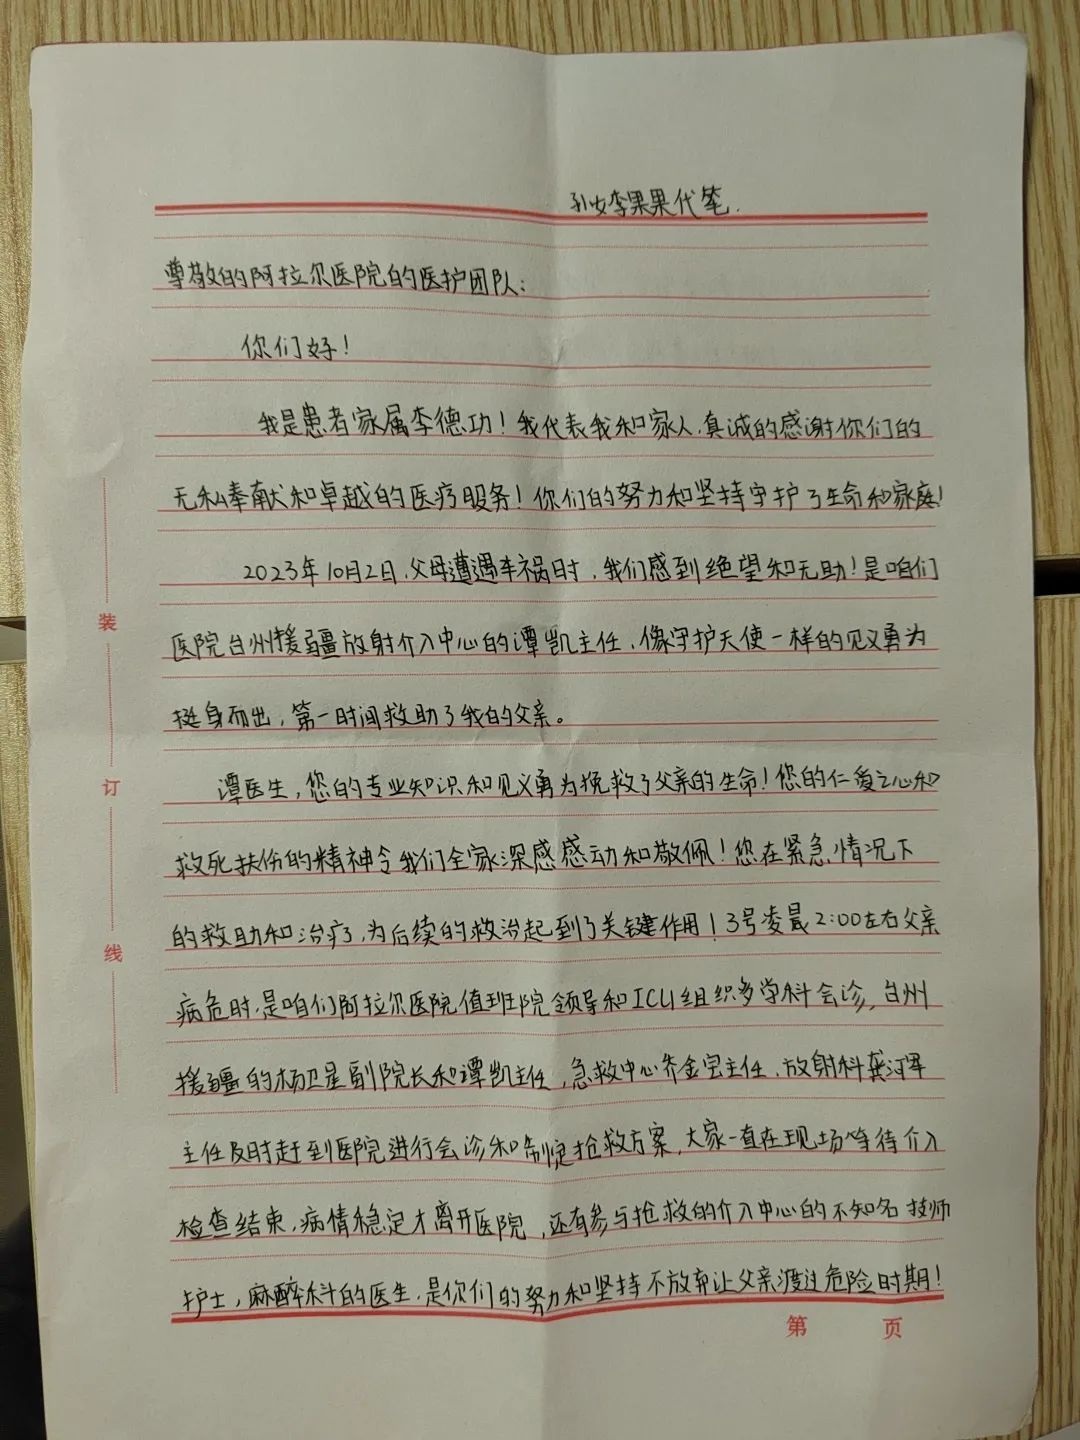 孙女李果果代笔.
尊敬的阿拉尔医院的医护团队:
你们好!
我是患者家属李德功!我代表我和家人,真诚的感谢你们的
无私奉献和卓越的医疗服务!你们的努力和坚持守护了生命和家庭!
2023年10月2日,父母遭遇车祸时,我们感到绝望和无助!是咱们
医院台州援疆放射介入中心的谭凯主任,像守护天使一样的见义勇为
挺身而出,第一时间救助了我的父亲。
谭医生,您的专业知识和见义勇为挽救了父亲的生命!您的仁爱之心和
救死扶伤的精神令我们全家深感感动和敬佩!您在紧急情况下
的救助和治疗,为后续的救治起到了关键作用!3号凌晨2:00左右父亲
病危时,是咱们阿拉尔医院值班院领导和ICU组织多学科会诊,台州
援疆的杨卫星副院长和谭凯主任,急救中心齐金宝主任,放射科龚河军
主任及时赶到医院进行会诊和制定抢救方案,大家一直在现场等待介入
检查结束,病情稳定才离开医院,还有参与抢救的介入中心的不知名技师
护士,麻醉科的医生,是你们的努力和坚持不放弃让父亲渡过危险时期!
装
订
线
第 页